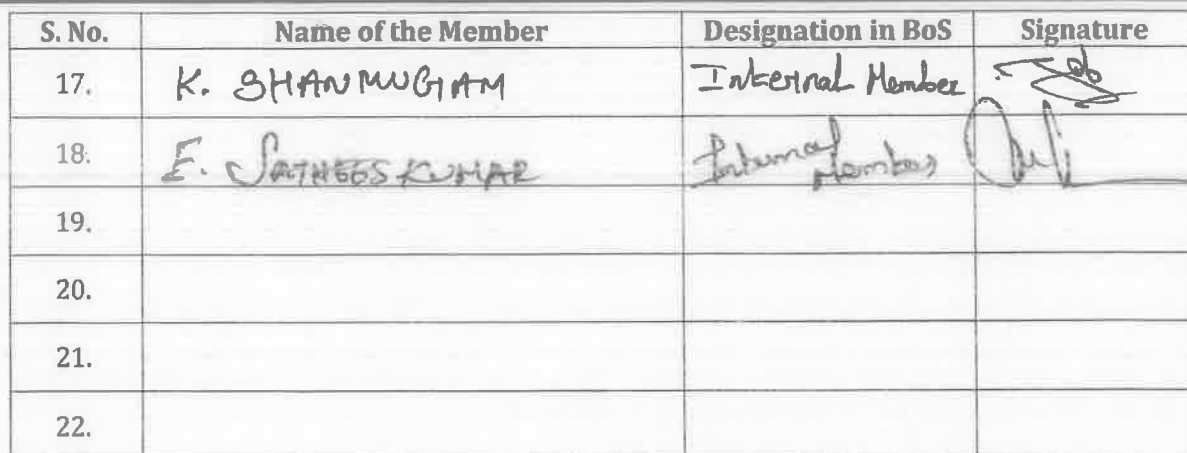 S. No. Name of the Member Designation in BoS Signature
17. K. SHANMUGAM Internal Member
18. E. SATHEESKUMAR Internal
Member
19.
20.
21.
22.